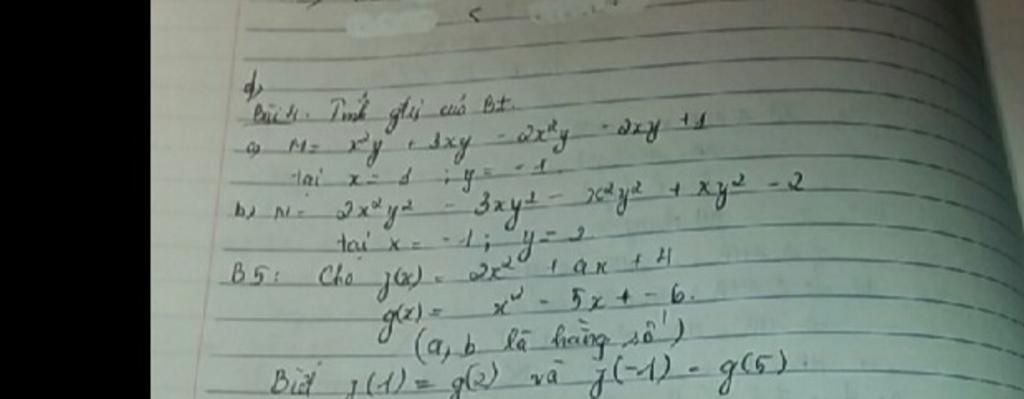 d,
Bài 4. Tính gtrị của Bt.
a) M = x²y + 3xy - 2x²y - 2xy + 1
tại x = 1 ; y = -1.
b, N = 2x²y² - 3xy² - x²y² + xy² - 2
tại x = -1; y = 2
B5: Cho f(x) = 2x² + ax + 4
g(x) = x² - 5x + - 6.
(a, b là hằng số)
Biết f(1) = g(2) và f(-1) = g(5).